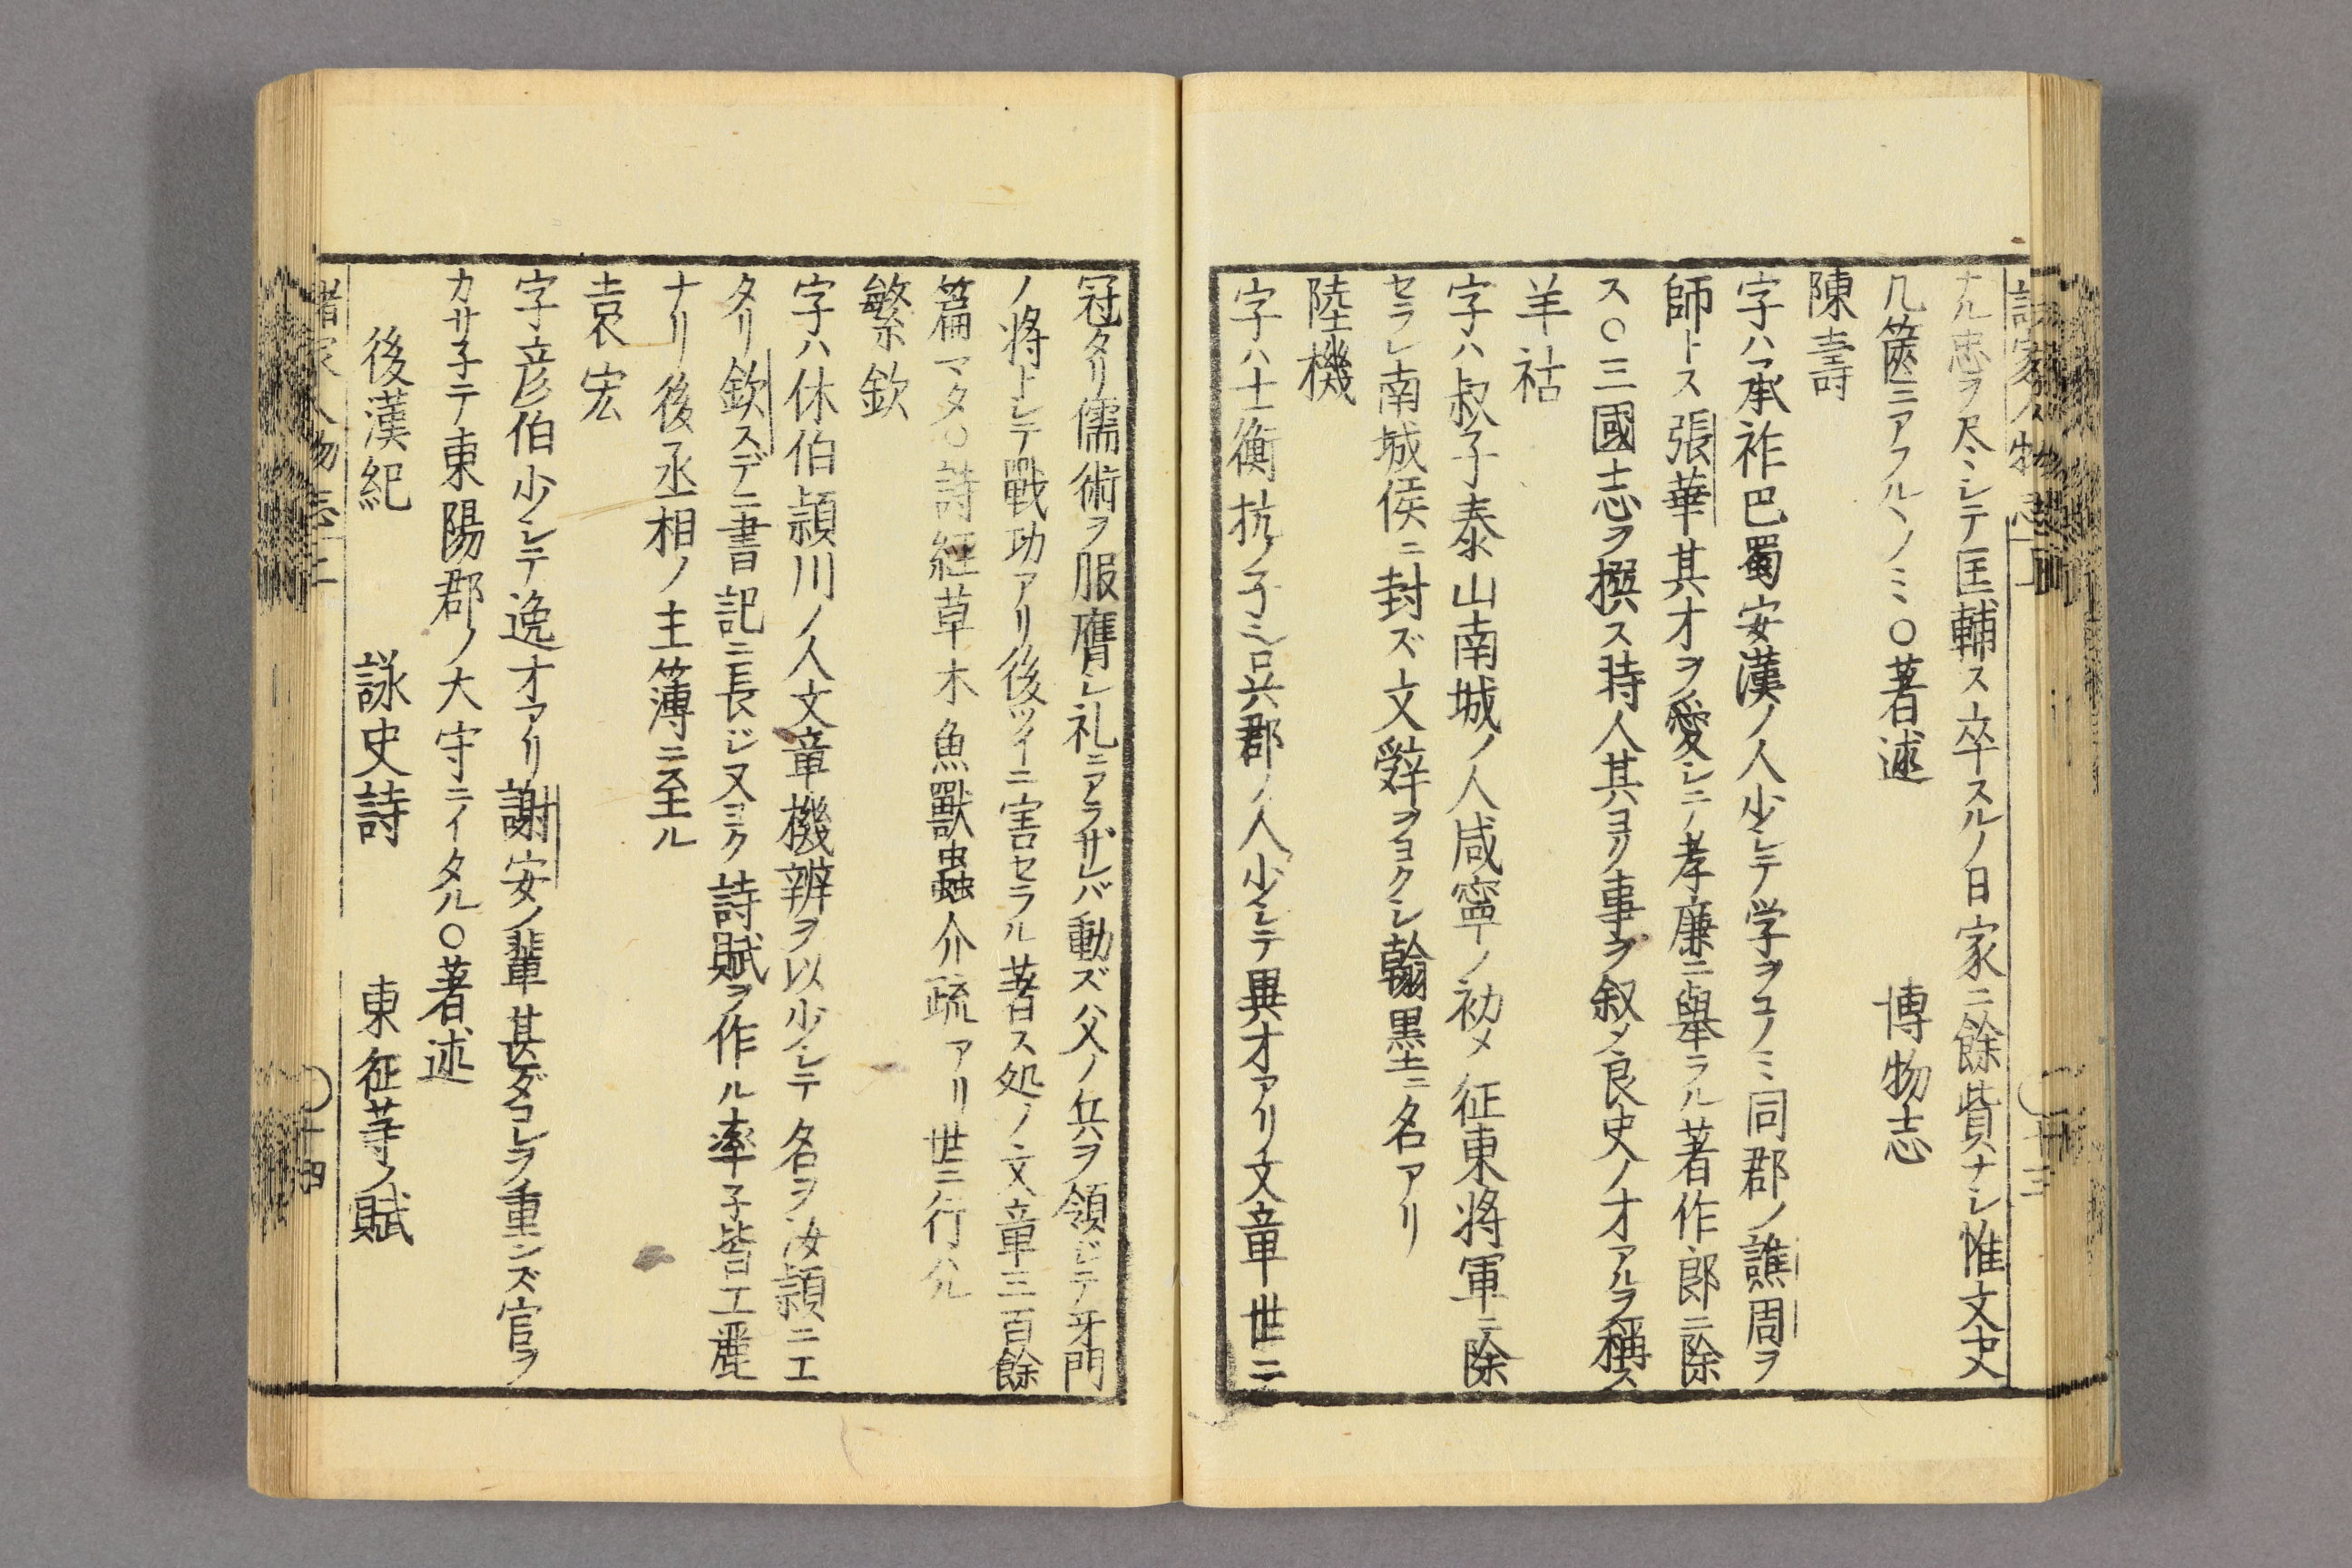 ナル忠ヲ尽シテ匡輔ス卒スルノ日家ニ餘貲ナシ惟文史
几篋ニアフルヽノミ○著述 博物志
陳壽
字ハ承祚巴蜀安漢ノ人少シテ学ヲコノミ同郡ノ譙周ヲ
師トス張華其才ヲ愛シニノ孝廉ニ舉ラル著作郎ニ除
ス○三國志ヲ撰ス時人其ヨリ事ヲ叙メ良史ノ才アルヲ稱ス
羊祜
字ハ叔子泰山南城ノ人咸寧ノ初メ征東将軍ニ除
セラレ南城侯ニ封ズ文辤ヲヨクシ翰墨ニ名アリ
陸機
字ハ士衡抗ノ子ミ呉郡ノ人少シテ異才アリ文章世ニ
冠タリ儒術ヲ服膺シ礼ニアラザレバ動ズ父ノ兵ヲ領ジテ牙門
ノ将トシテ戰功アリ後ツイニ害セラル著ス処ノ文章三百餘
篇マタ○詩經草木魚獸蟲介疏アリ世ニ行ハル
繁欽
字ハ休伯潁川ノ人文章機辨ヲ以少シテ名ヲ汝潁ニエ
タリ欽スデニ書記ニ長ジ又ヨク詩賦ヲ作ル率子皆工麗
ナリ後丞相ノ主簿ニ至ル
袁宏
字彦伯少シテ逸才アリ謝安ノ輩甚ダコレヲ重ンズ官ヲ
カサ子テ東陽郡ノ大守ニイタル○著述
後漢紀 詠史詩 東征䒭ノ賦
諸家人物志上 十四